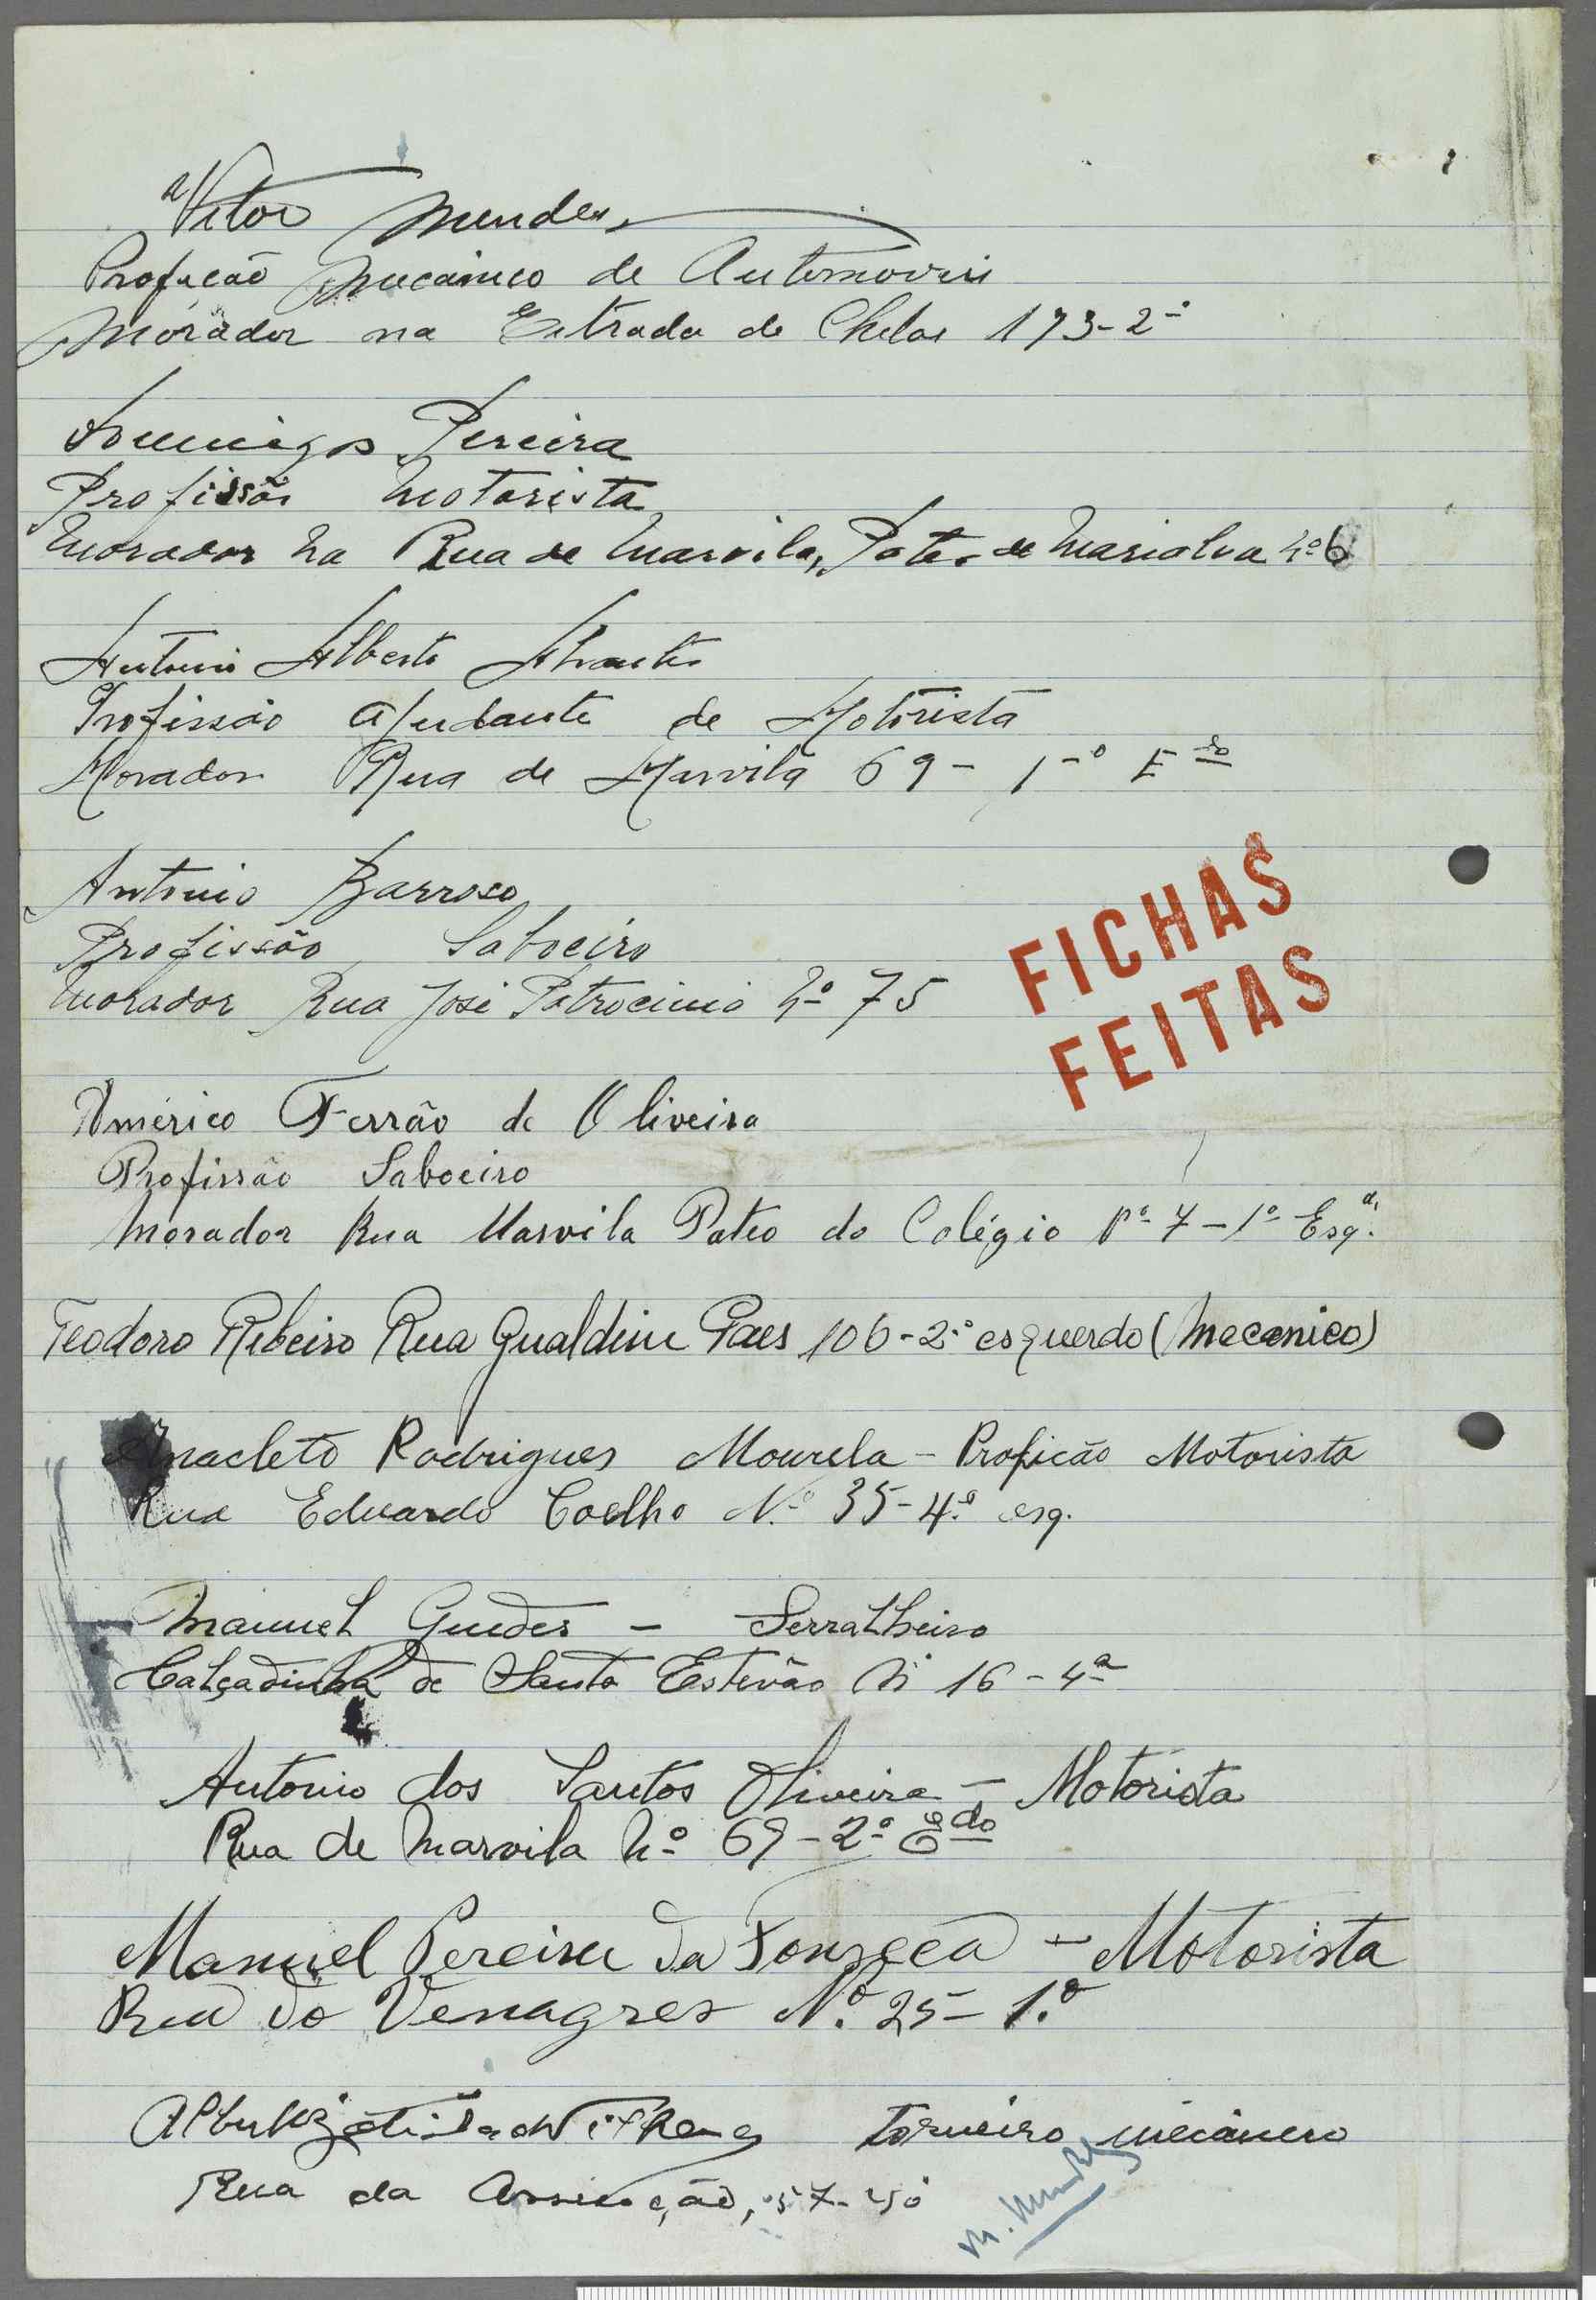 Vitor Mendes
Profição Mecanico de Automoveis
Morador na Estrada de Chelas 173-2º
Domingos Pereira
Profissão Motorista
Morador na Rua de Marvila, Pateo de Marialva nº 6
Antonio Alberto
Profissão Ajudante de Motorista
Morador Rua de Marvila 69 - 1º Edo
Antonio Barroso
Profissão Saboeiro
Morador Rua José Patrocinio nº 75
FICHAS
FEITAS
Américo Ferrão de Oliveira
Profissão Saboeiro
Morador Rua Marvila Pateo do Colégio Nº 7 - 1º Esqd.
Teodoro Ribeiro Rua Gualdim Paes 106-2º esquerdo (Mecanico)
Anacleto Rodrigues Mourela - Profição Motorista
Rua Eduardo Coelho Nº 35-4º esq.
Manuel Guedes - Serralheiro
Calçadinha de Santo Estevão Nº 16-4º
Antonio dos Santos Oliveira - Motorista
Rua de Marvila Nº 69-2º Edo
Manuel Pereira da Fonseca - Motorista
Rua do Venagres Nº 25-1.º
torneiro mecânico
Rua da Assunção, 57-